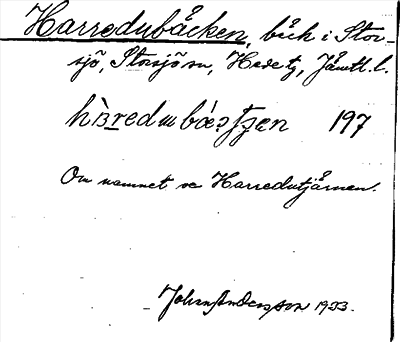 Harredubäcken, bäck i Stor-
sjö, Storsjö sn, Hede tg, Jämtl. l.
197
Om namnet se Harredutjärnen.
Johan Andersson 1933.